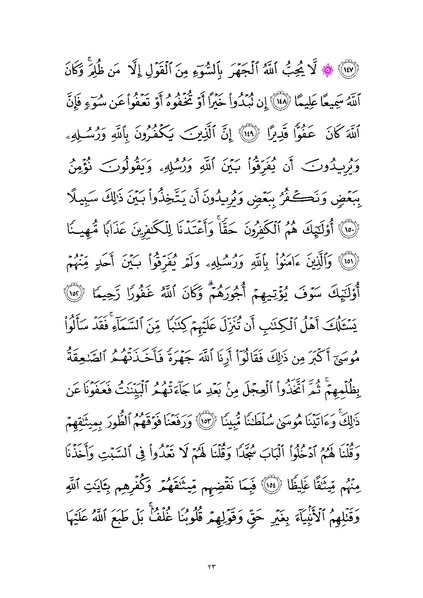 ﴿١٤٧﴾ ۞ لَّا يُحِبُّ ٱللَّهُ ٱلْجَهْرَ بِٱلسُّوٓءِ مِنَ ٱلْقَوْلِ إِلَّا مَن ظُلِمَ ۚ وَكَانَ
ٱللَّهُ سَمِيعًا عَلِيمًا ﴿١٤٨﴾ إِن تُبْدُوا۟ خَيْرًا أَوْ تُخْفُوهُ أَوْ تَعْفُوا۟ عَن سُوٓءٍ فَإِنَّ
ٱللَّهَ كَانَ عَفُوًّا قَدِيرًا ﴿١٤٩﴾ إِنَّ ٱلَّذِينَ يَكْفُرُونَ بِٱللَّهِ وَرُسُلِهِۦ
وَيُرِيدُونَ أَن يُفَرِّقُوا۟ بَيْنَ ٱللَّهِ وَرُسُلِهِۦ وَيَقُولُونَ نُؤْمِنُ
بِبَعْضٍ وَنَكْفُرُ بِبَعْضٍ وَيُرِيدُونَ أَن يَتَّخِذُوا۟ بَيْنَ ذَٰلِكَ سَبِيلًا
﴿١٥٠﴾ أُو۟لَٰٓئِكَ هُمُ ٱلْكَٰفِرُونَ حَقًّا ۚ وَأَعْتَدْنَا لِلْكَٰفِرِينَ عَذَابًا مُّهِينًا
﴿١٥١﴾ وَٱلَّذِينَ ءَامَنُوا۟ بِٱللَّهِ وَرُسُلِهِۦ وَلَمْ يُفَرِّقُوا۟ بَيْنَ أَحَدٍ مِّنْهُمْ
أُو۟لَٰٓئِكَ سَوْفَ يُؤْتِيهِمْ أُجُورَهُمْ ۗ وَكَانَ ٱللَّهُ غَفُورًا رَّحِيمًا ﴿١٥٢﴾
يَسْـَٔلُكَ أَهْلُ ٱلْكِتَٰبِ أَن تُنَزِّلَ عَلَيْهِمْ كِتَٰبًا مِّنَ ٱلسَّمَآءِ ۚ فَقَدْ سَأَلُوا۟
مُوسَىٰٓ أَكْبَرَ مِن ذَٰلِكَ فَقَالُوٓا۟ أَرِنَا ٱللَّهَ جَهْرَةً فَأَخَذَتْهُمُ ٱلصَّٰعِقَةُ
بِظُلْمِهِمْ ۚ ثُمَّ ٱتَّخَذُوا۟ ٱلْعِجْلَ مِنۢ بَعْدِ مَا جَآءَتْهُمُ ٱلْبَيِّنَٰتُ فَعَفَوْنَا عَن
ذَٰلِكَ ۚ وَءَاتَيْنَا مُوسَىٰ سُلْطَٰنًا مُّبِينًا ﴿١٥٣﴾ وَرَفَعْنَا فَوْقَهُمُ ٱلطُّورَ بِمِيثَٰقِهِمْ
وَقُلْنَا لَهُمُ ٱدْخُلُوا۟ ٱلْبَابَ سُجَّدًا وَقُلْنَا لَهُمْ لَا تَعْدُوا۟ فِى ٱلسَّبْتِ وَأَخَذْنَا
مِنْهُم مِّيثَٰقًا غَلِيظًا ﴿١٥٤﴾ فَبِمَا نَقْضِهِم مِّيثَٰقَهُمْ وَكُفْرِهِم بِـَٔايَٰتِ ٱللَّهِ
وَقَتْلِهِمُ ٱلْأَنۢبِيَآءَ بِغَيْرِ حَقٍّ وَقَوْلِهِمْ قُلُوبُنَا غُلْفٌۢ ۚ بَلْ طَبَعَ ٱللَّهُ عَلَيْهَا
٢٣